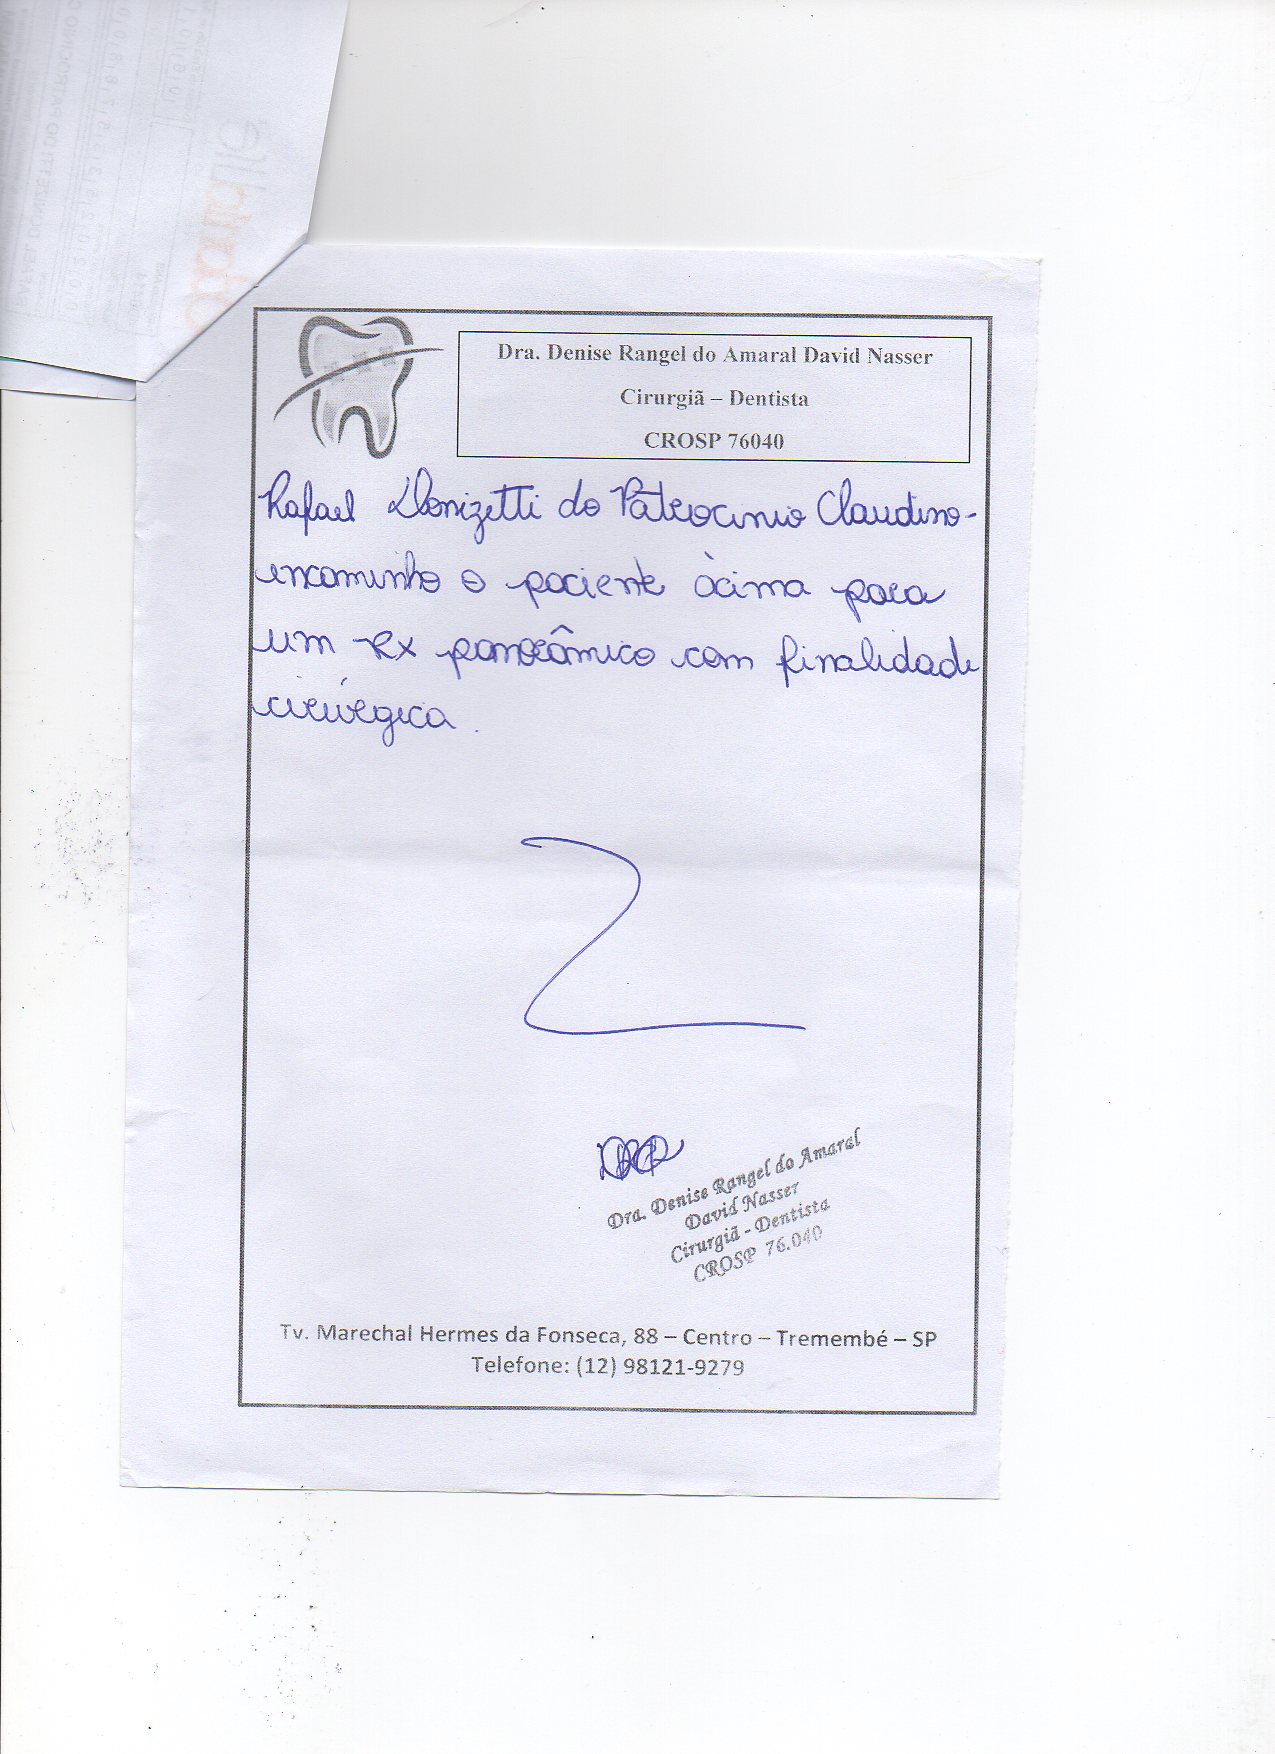 Dra. Denise Rangel do Amaral David Nasser
Cirurgiã – Dentista
CROSP 76040
Rafael Donizetti do Patrocinio Claudino -
encaminho o paciente àcima para
um RX panorâmico com finalidade
cirúrgica.
Dra. Denise Rangel do Amaral
David Nasser
Cirurgiã - Dentista
CROSP 76.040
Tv. Marechal Hermes da Fonseca, 88 – Centro – Tremembé – SP
Telefone: (12) 98121-9279